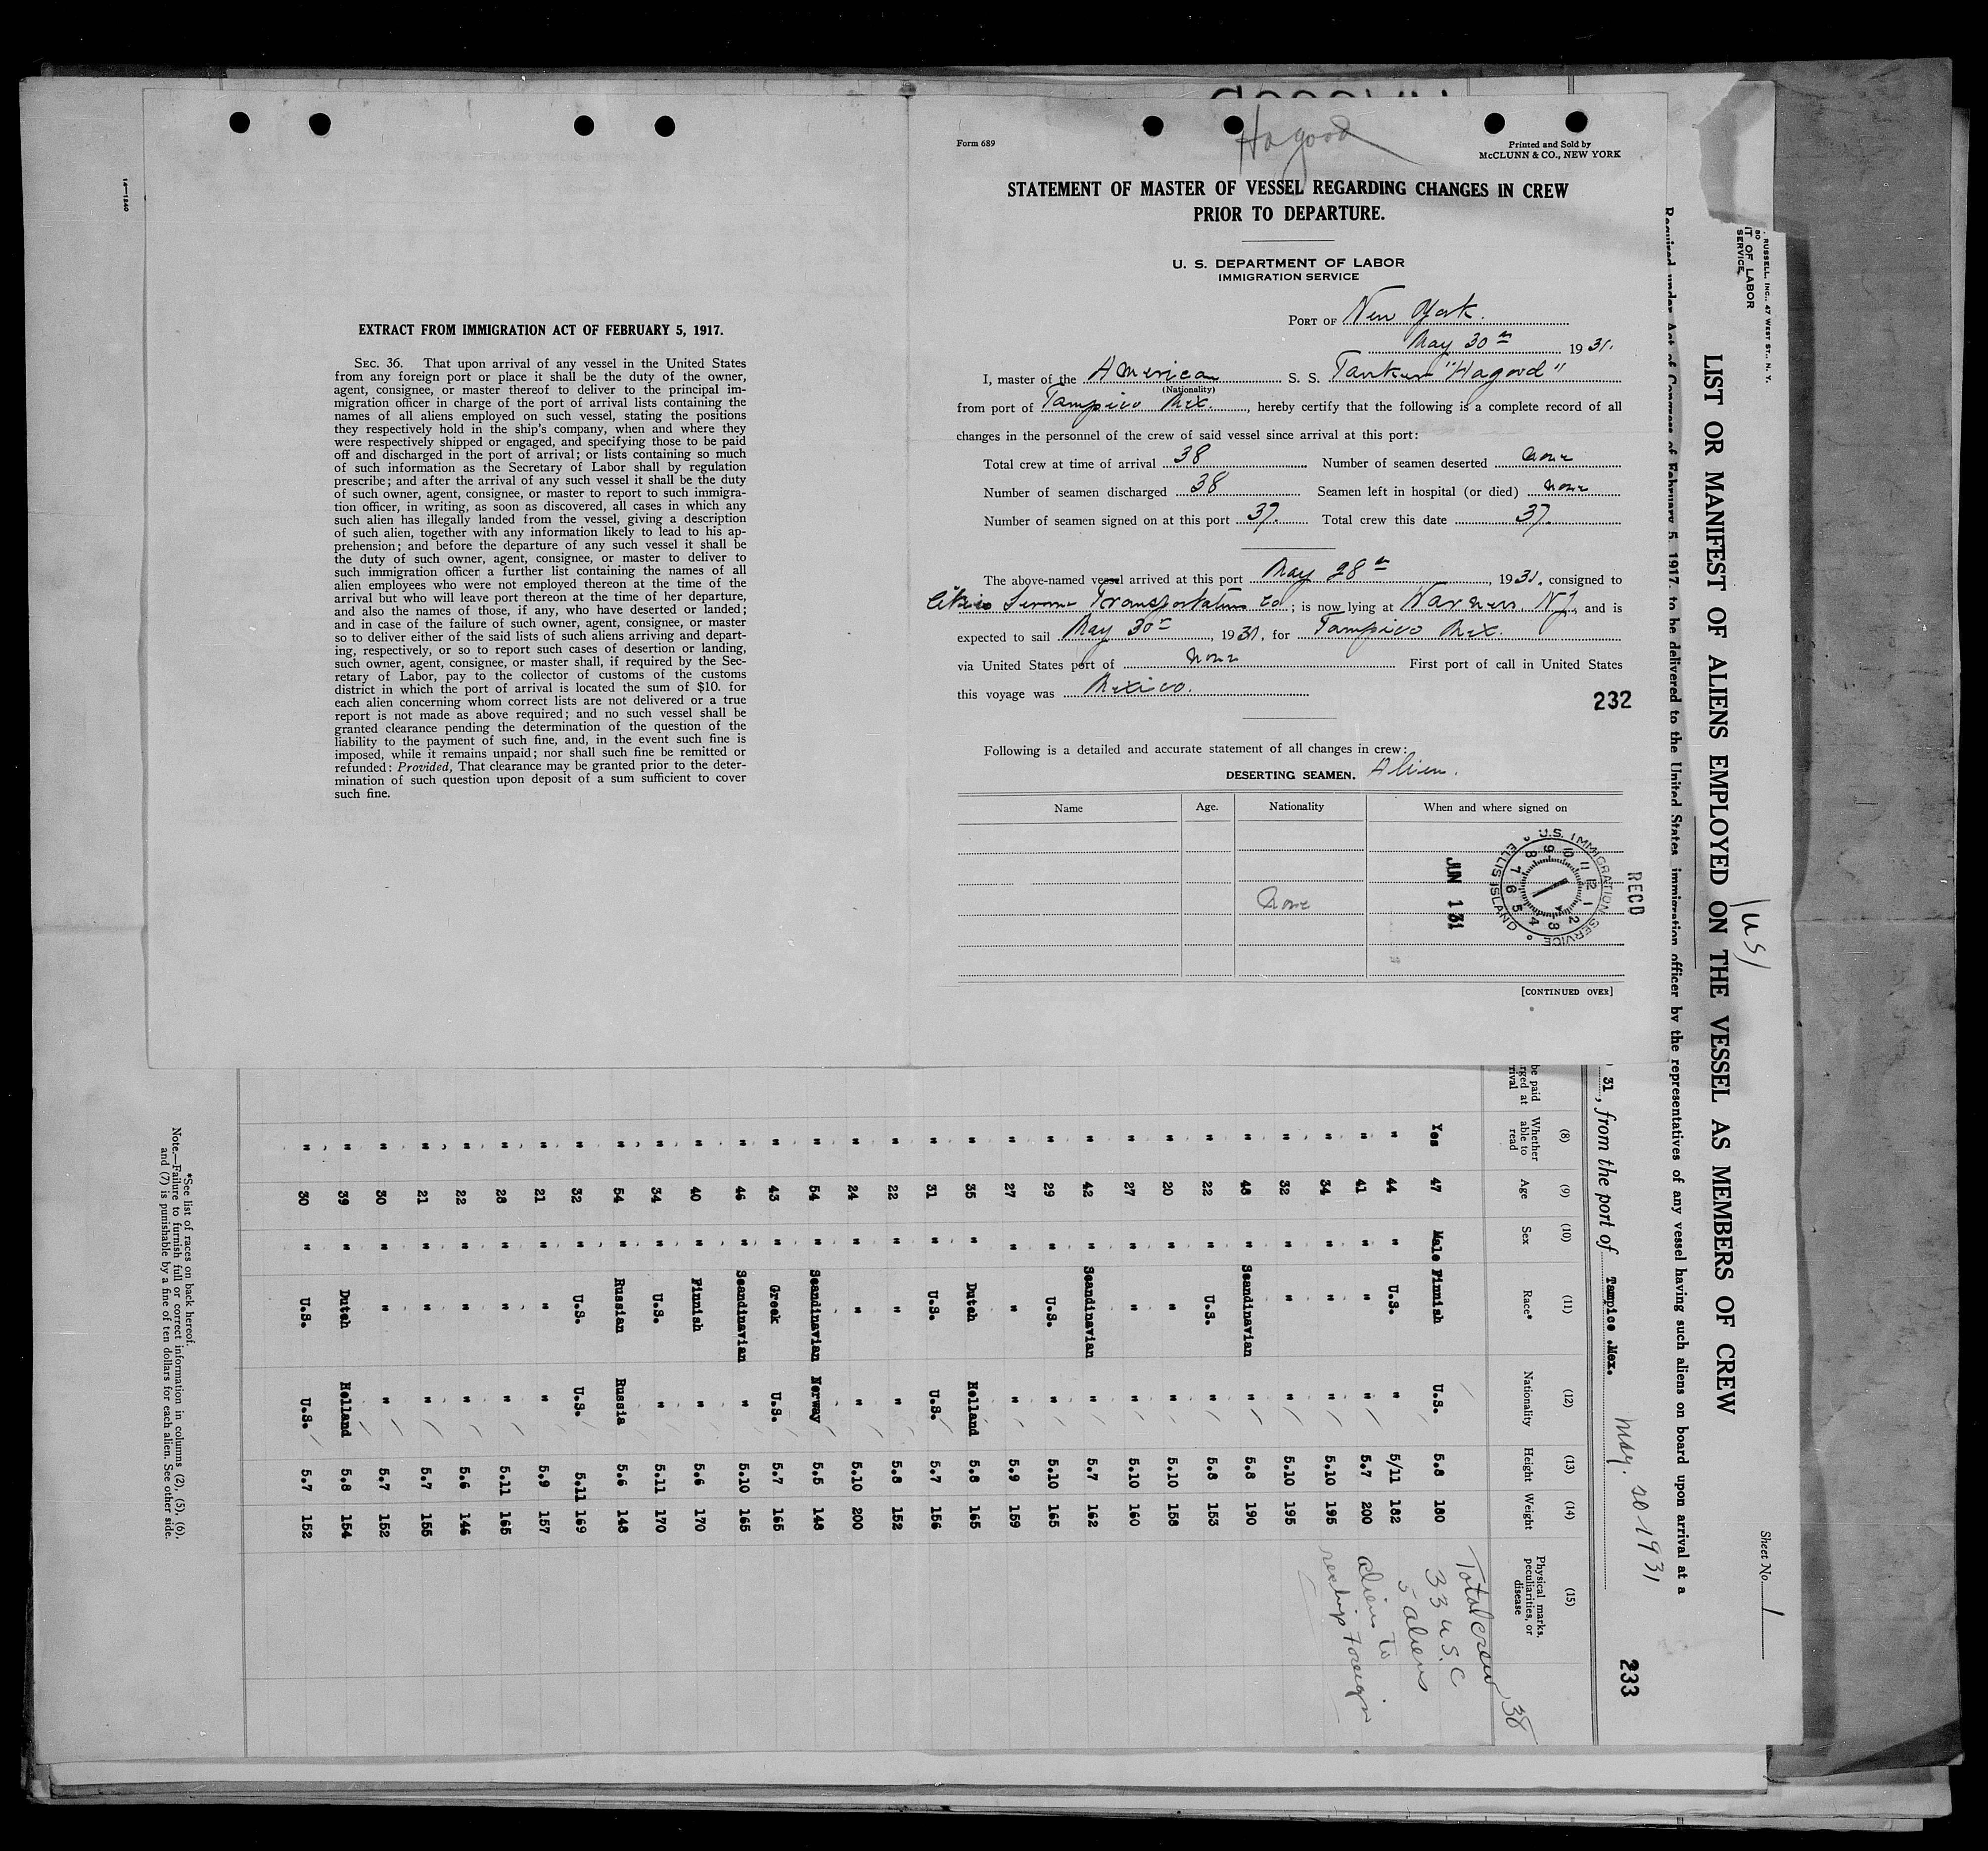 14—1240
EXTRACT FROM IMMIGRATION ACT OF FEBRUARY 5, 1917.
SEC. 36. That upon arrival of any vessel in the United States
from any foreign port or place it shall be the duty of the owner,
agent, consignee, or master thereof to deliver to the principal im-
migration officer in charge of the port of arrival lists containing the
names of all aliens employed on such vessel, stating the positions
they respectively hold in the ship's company, when and where they
were respectively shipped or engaged, and specifying those to be paid
off and discharged in the port of arrival; or lists containing so much
of such information as the Secretary of Labor shall by regulation
prescribe; and after the arrival of any such vessel it shall be the duty
of such owner, agent, consignee, or master to report to such immigra-
tion officer, in writing, as soon as discovered, all cases in which any
such alien has illegally landed from the vessel, giving a description
of such alien, together with any information likely to lead to his ap-
prehension; and before the departure of any such vessel it shall be
the duty of such owner, agent, consignee, or master to deliver to
such immigration officer a further list containing the names of all
alien employees who were not employed thereon at the time of the
arrival but who will leave port thereon at the time of her departure,
and also the names of those, if any, who have deserted or landed;
and in case of the failure of such owner, agent, consignee, or master
so to deliver either of the said lists of such aliens arriving and depart-
ing, respectively, or so to report such cases of desertion or landing,
such owner, agent, consignee, or master shall, if required by the Sec-
retary of Labor, pay to the collector of customs of the customs
district in which the port of arrival is located the sum of $10. for
each alien concerning whom correct lists are not delivered or a true
report is not made as above required; and no such vessel shall be
granted clearance pending the determination of the question of the
liability to the payment of such fine, and, in the event such fine is
imposed, while it remains unpaid; nor shall such fine be remitted or
refunded: Provided, That clearance may be granted prior to the deter-
mination of such question upon deposit of a sum sufficient to cover
such fine.
Hagood
Form 689
Printed and Sold by
McCLUNN & CO., NEW YORK
STATEMENT OF MASTER OF VESSEL REGARDING CHANGES IN CREW
PRIOR TO DEPARTURE.
U. S. DEPARTMENT OF LABOR
IMMIGRATION SERVICE
PORT OF New York.
May 30th 1931.
I, master of the American S. S. Tanker "Hagood"
(Nationality)
from port of Tampico Mex., hereby certify that the following is a complete record of all
changes in the personnel of the crew of said vessel since arrival at this port:
Total crew at time of arrival 38 Number of seamen deserted None
Number of seamen discharged 38 Seamen left in hospital (or died) None
Number of seamen signed on at this port 37. Total crew this date 37.
The above-named vessel arrived at this port May 28th, 1931, consigned to
Transportation Co; is now lying at Warners. N.J., and is
expected to sail May 30th, 1931, for Tampico Mex.
via United States port of None First port of call in United States
this voyage was Mexico.
232
Following is a detailed and accurate statement of all changes in crew:
DESERTING SEAMEN. Alien.
Name Age. Nationality When and where signed on
None
RECD
U.S. IMMIGRATION SERVICE
ELLIS ISLAND
JUN 1 31
[CONTINUED OVER]
RUSSELL, INC., 47 WEST ST., N. Y.
T OF LABOR
SERVICE
Sheet No. 1
US
LIST OR MANIFEST OF ALIENS EMPLOYED ON THE VESSEL AS MEMBERS OF CREW
Required under Act of Congress of February 5, 1917, to be delivered to the United States immigration officer by the representatives of any vessel having such aliens on board upon arrival at a
31, from the port of Tampico .Mex. May. 20-1931
233
(8) (9) (10) (11) (12) (13) (14) (15)
be paid
rged at
rival
Whether able to read Age Sex Race* Nationality Height Weight Physical marks, peculiarities, or disease
Yes 47 Male Finnish U.S. 5.8 180
" 44 " U.S. " 5/11 182
" 41 " " " 5.7 200
" 34 " " " 5.10 195
" 32 " " " 5.10 195
" 48 " Scandinavian " 5.8 190
" 22 " U.S. " 5.8 153
" 20 " " " 5.10 158
" 27 " " " 5.10 160
" 42 " Scandinavian " 5.7 162
" 29 " U.S. " 5.10 165
" 27 " " " 5.9 159
" 35 " Dutch Holland 5.8 165
" 31 " U.S. U.S. 5.7 156
" 22 " " " 5.8 152
" 24 " " " 5.10 200
" 54 " Scandinavian Norway 5.5 148
" 43 " Greek U.S. 5.7 165
" 46 " Scandinavian " 5.10 165
" 40 " Finnish " 5.6 170
" 34 " U.S. " 5.11 170
" 54 " Russian Russia 5.6 148
" 32 " U.S. U.S. 5.11 169
" 21 " " " 5.9 157
" 28 " " " 5.11 165
" 22 " " " 5.6 146
" 21 " " " 5.7 155
" 30 " " " 5.7 152
" 39 " Dutch Holland 5.8 154
" 30 " U.S. U.S. 5.7 152
Total crew 38
33 U.S.C
5 aliens
aliens to
reship foreign
*See list of races on back hereof.
Note.—Failure to furnish full or correct information in columns (2), (5), (6),
and (7) is punishable by a fine of ten dollars for each alien. See other side.